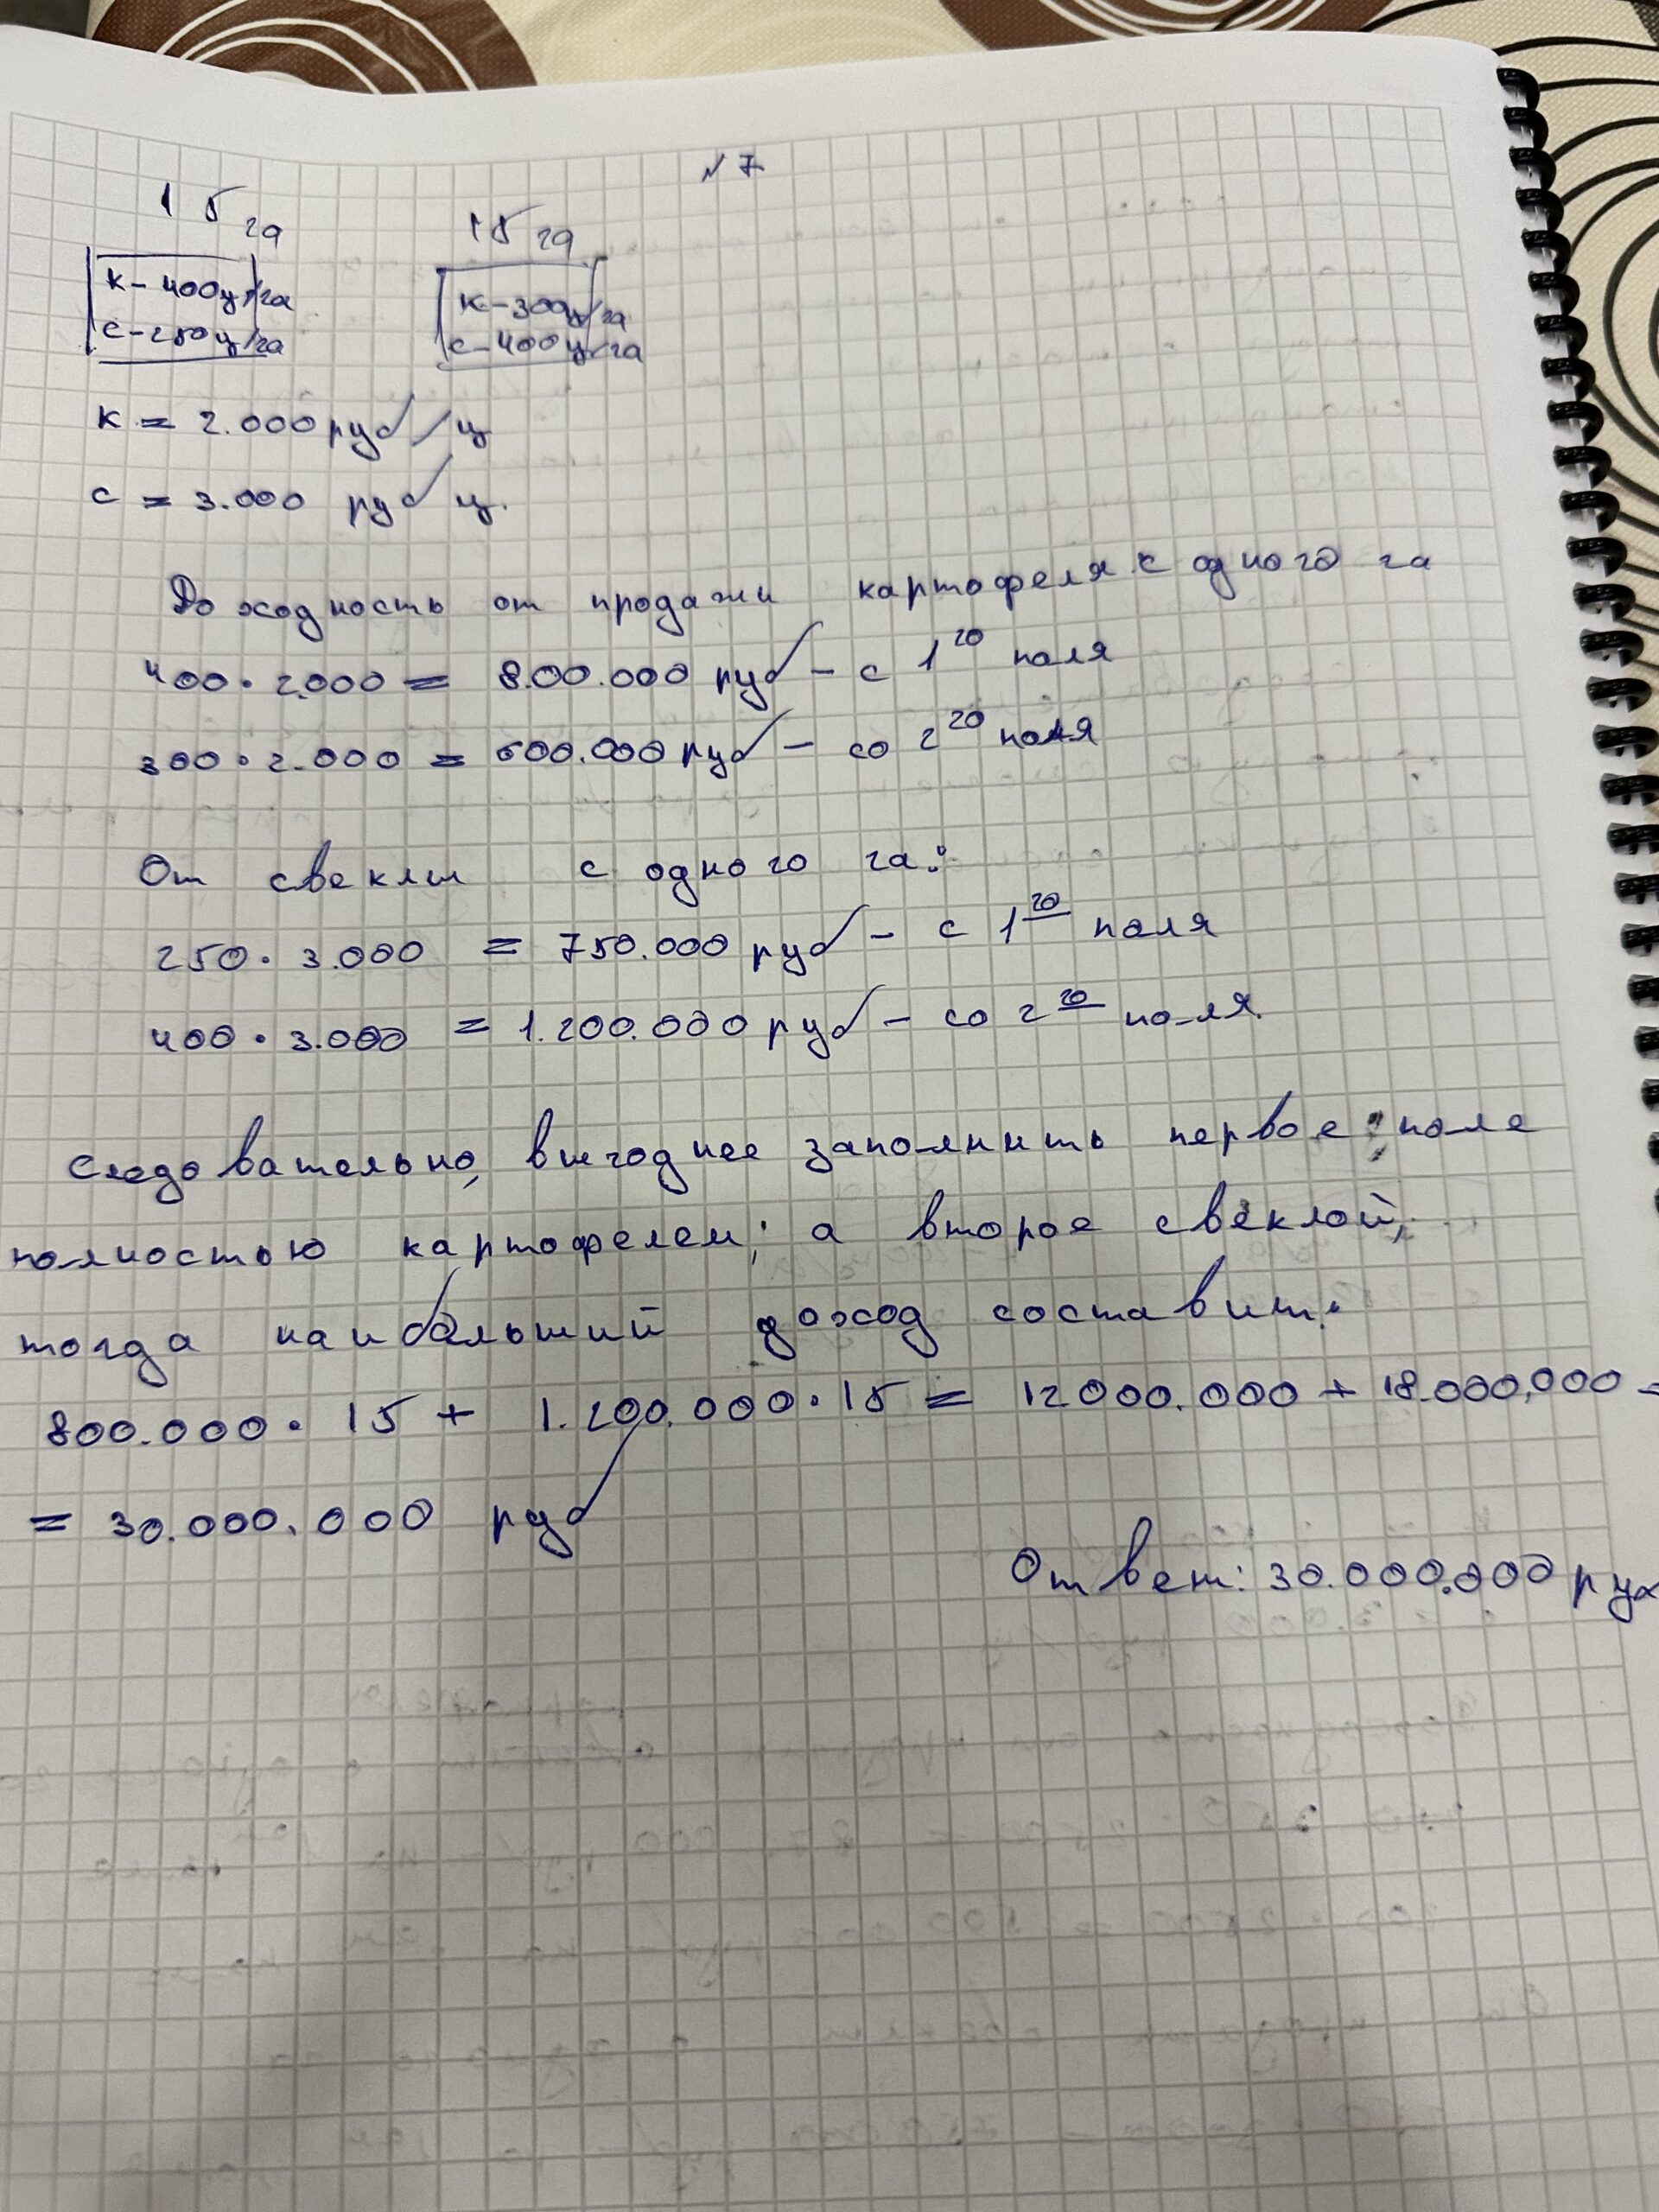 №7
15 га 15 га
к – 400ц/га к – 300ц/га
с – 250ц/га с – 400ц/га
к = 2.000 руб/ц
с = 3.000 руб ц.
Доходность от продажи картофеля с одного га
400 · 2.000 = 800.000 руб – с 1го поля
300 · 2.000 = 600.000 руб – со 2го поля
От свеклы с одного га:
250 · 3.000 = 750.000 руб – с 1го поля
400 · 3.000 = 1.200.000 руб – со 2го поля.
Следовательно, выгоднее заполнить первое поле
полностью картофелем; а второе свёклой,
тогда наибольший доход составит:
800.000 · 15 + 1.200.000 · 15 = 12000.000 + 18.000.000 =
= 30.000.000 руб
Ответ: 30.000.000 руб